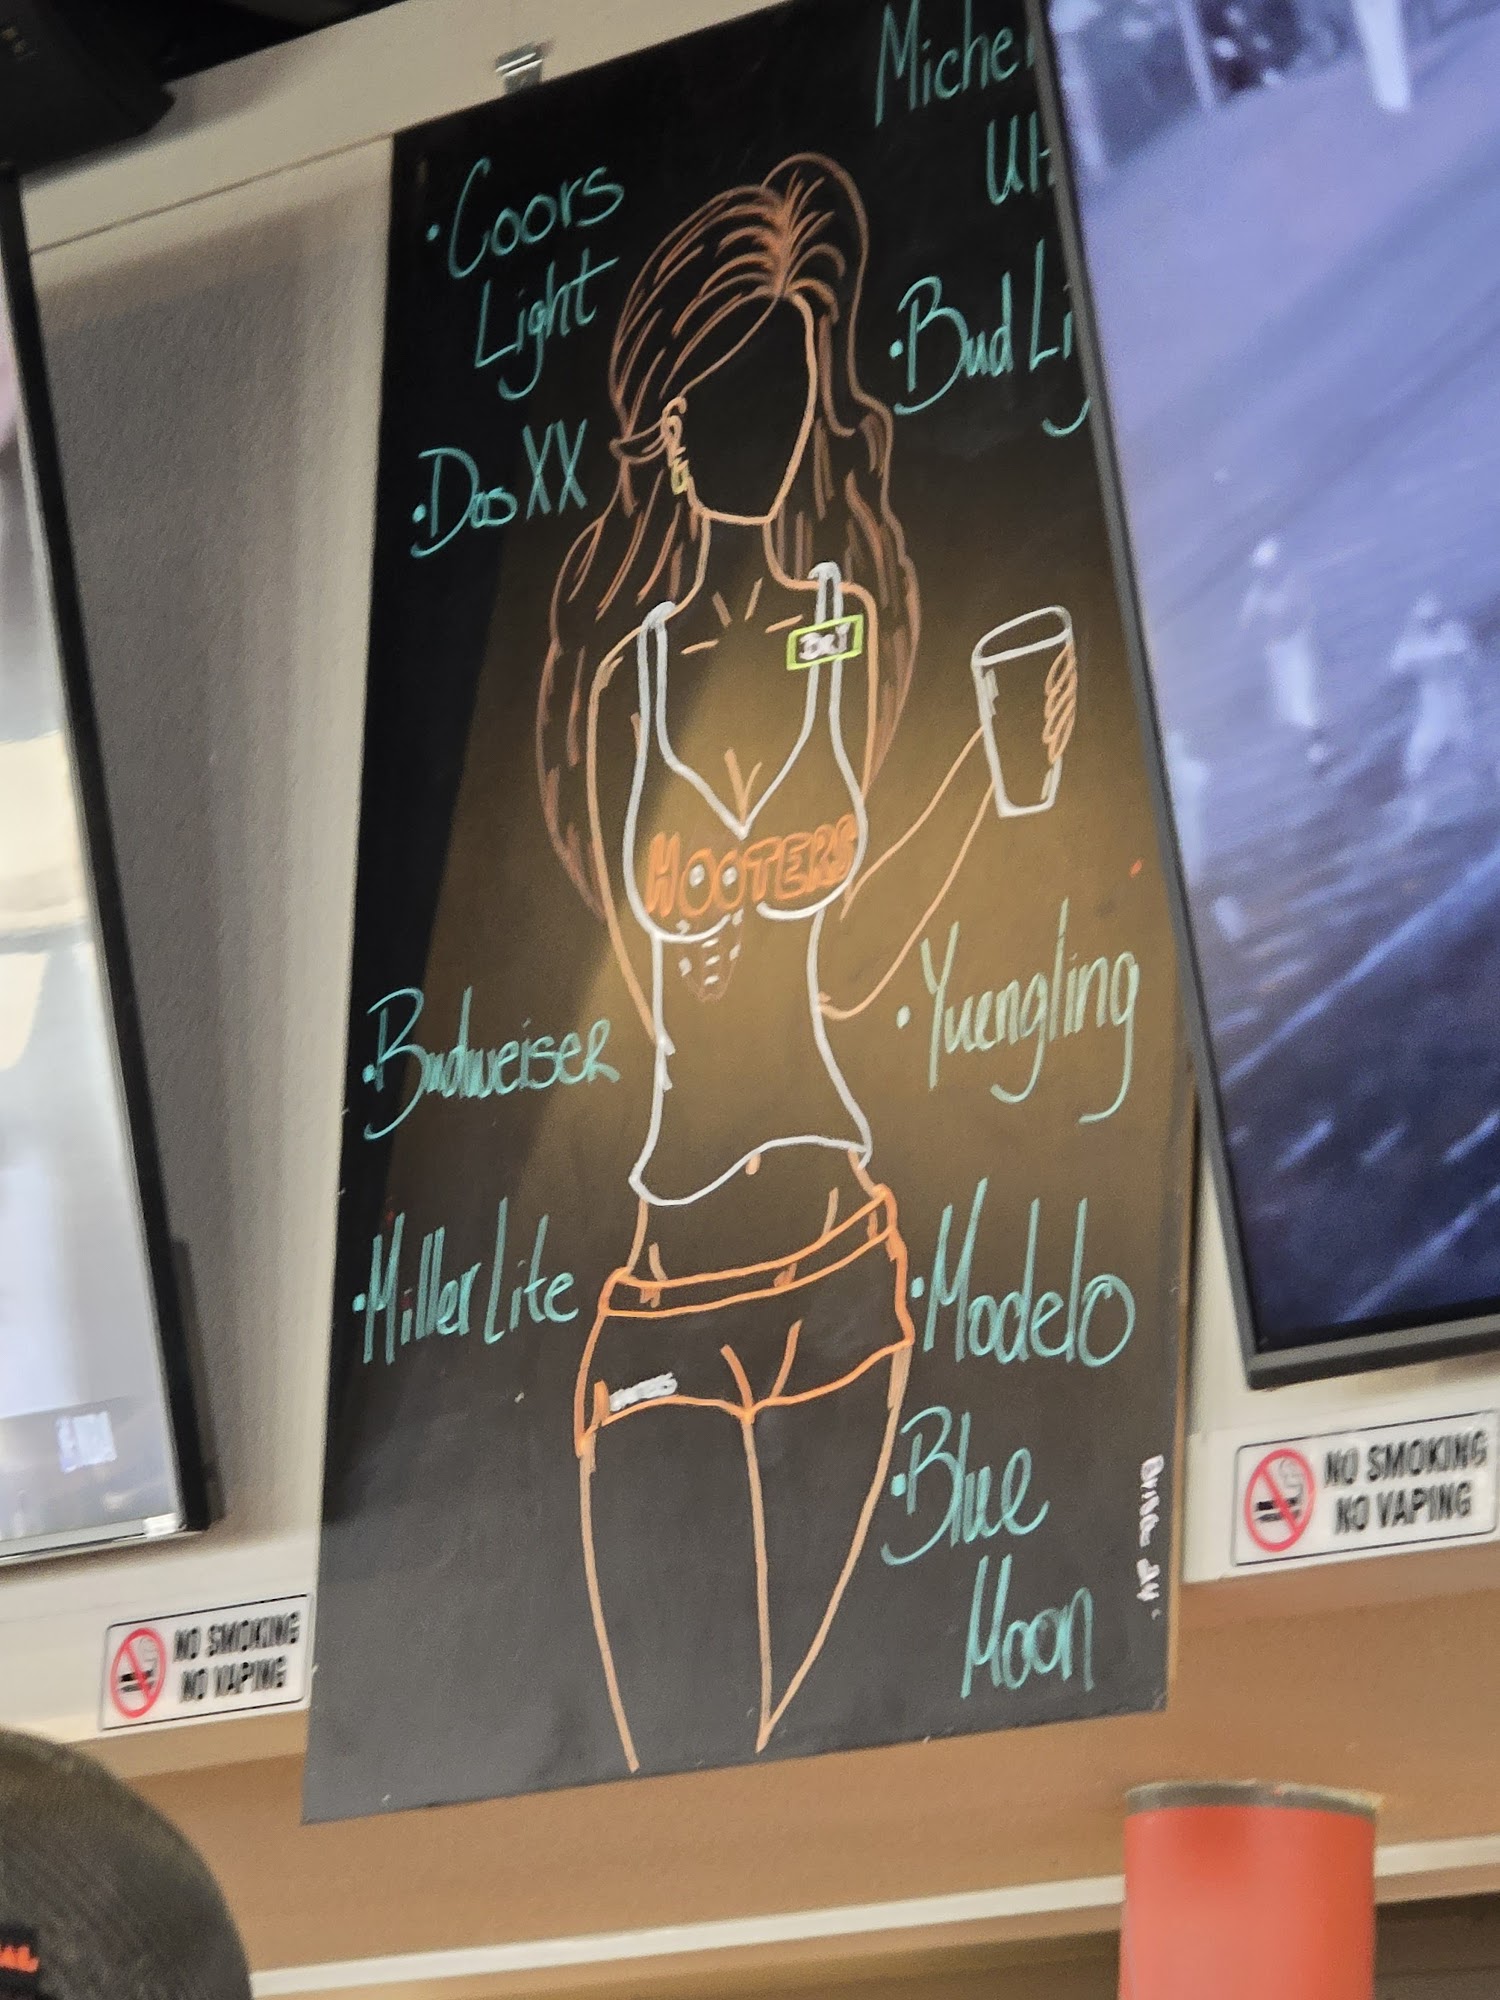 · Coors
Light
· Dos XX
· Budweiser
· Miller Lite
Miche
Ul
· Bud Li
HOOTERS
· Yuengling
· Modelo
· Blue
Moon
NO SMOKING
NO VAPING
NO SMOKING
NO VAPING